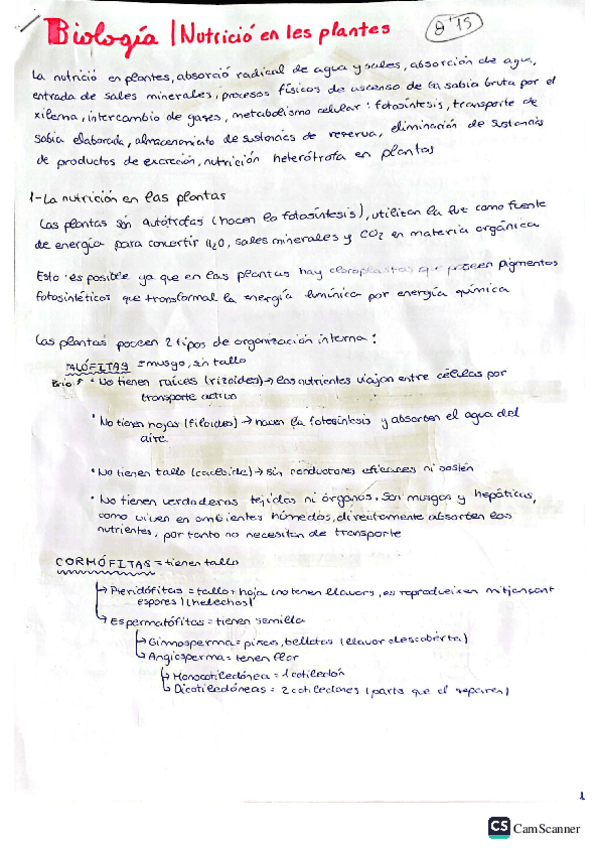 Biología | Nutrició en les plantes
8'75
La nutrició en plantes, absorció radical de agua y sales, absorción de agua,
entrada de sales minerales, procesos físicos de ascenso de la sabia bruta por el
xilema, intercambio de gases, metabolismo celular: fotosíntesis, transporte de
sabia elaborada, almacenamiento de sustancias de reserva, eliminación de sustancias
de productos de excreción, nutrición heterótrofa en plantas
1-La nutrición en las plantas
Las plantas són autótrofas (hacen la fotosíntesis), utilitzan la luz como fuente
de energía para convertir H2O, sales minerales y CO2 en materia orgánica
Esto es posible ya que en las plantas hay cloroplastos que poseen pigmentos
fotosintéticos que transformal la energía lumínica por energía química
Las plantas poseen 2 tipos de organización interna:
TALÓFITAS = musgo, sin tallo
Brio
• No tienen raíces (rizoides) → las nutrientes viajan entre células por
transporte activo
• No tienen hojas (filoides) → hacen la fotosíntesis y absorben el agua del
aire.
• No tienen tallo (cauloide) → sin conductores eficienes ni sostén
• No tienen verdaderos tejidos ni órganos. Son musgos y hepáticas,
como viven en ambientes húmedos, directamente absorben los
nutrientes, por tanto no necesitan de transporte
CORMÓFITAS = tienen tallo
→ Pteridófitas = tallo + hoja (no tenen llavors, es reprodueixen mitjançant
espores) (helechos)
→ Espermatófitas = tienen semilla
→ Gimnosperma = piñas, bellotas (llavor descoberta)
→ Angiosperma = tenen flor
→ Monocotiledónea = 1 cotiledón
→ Dicotiledóneas = 2 cotiledones (parts que el separen)
1
CS CamScanner